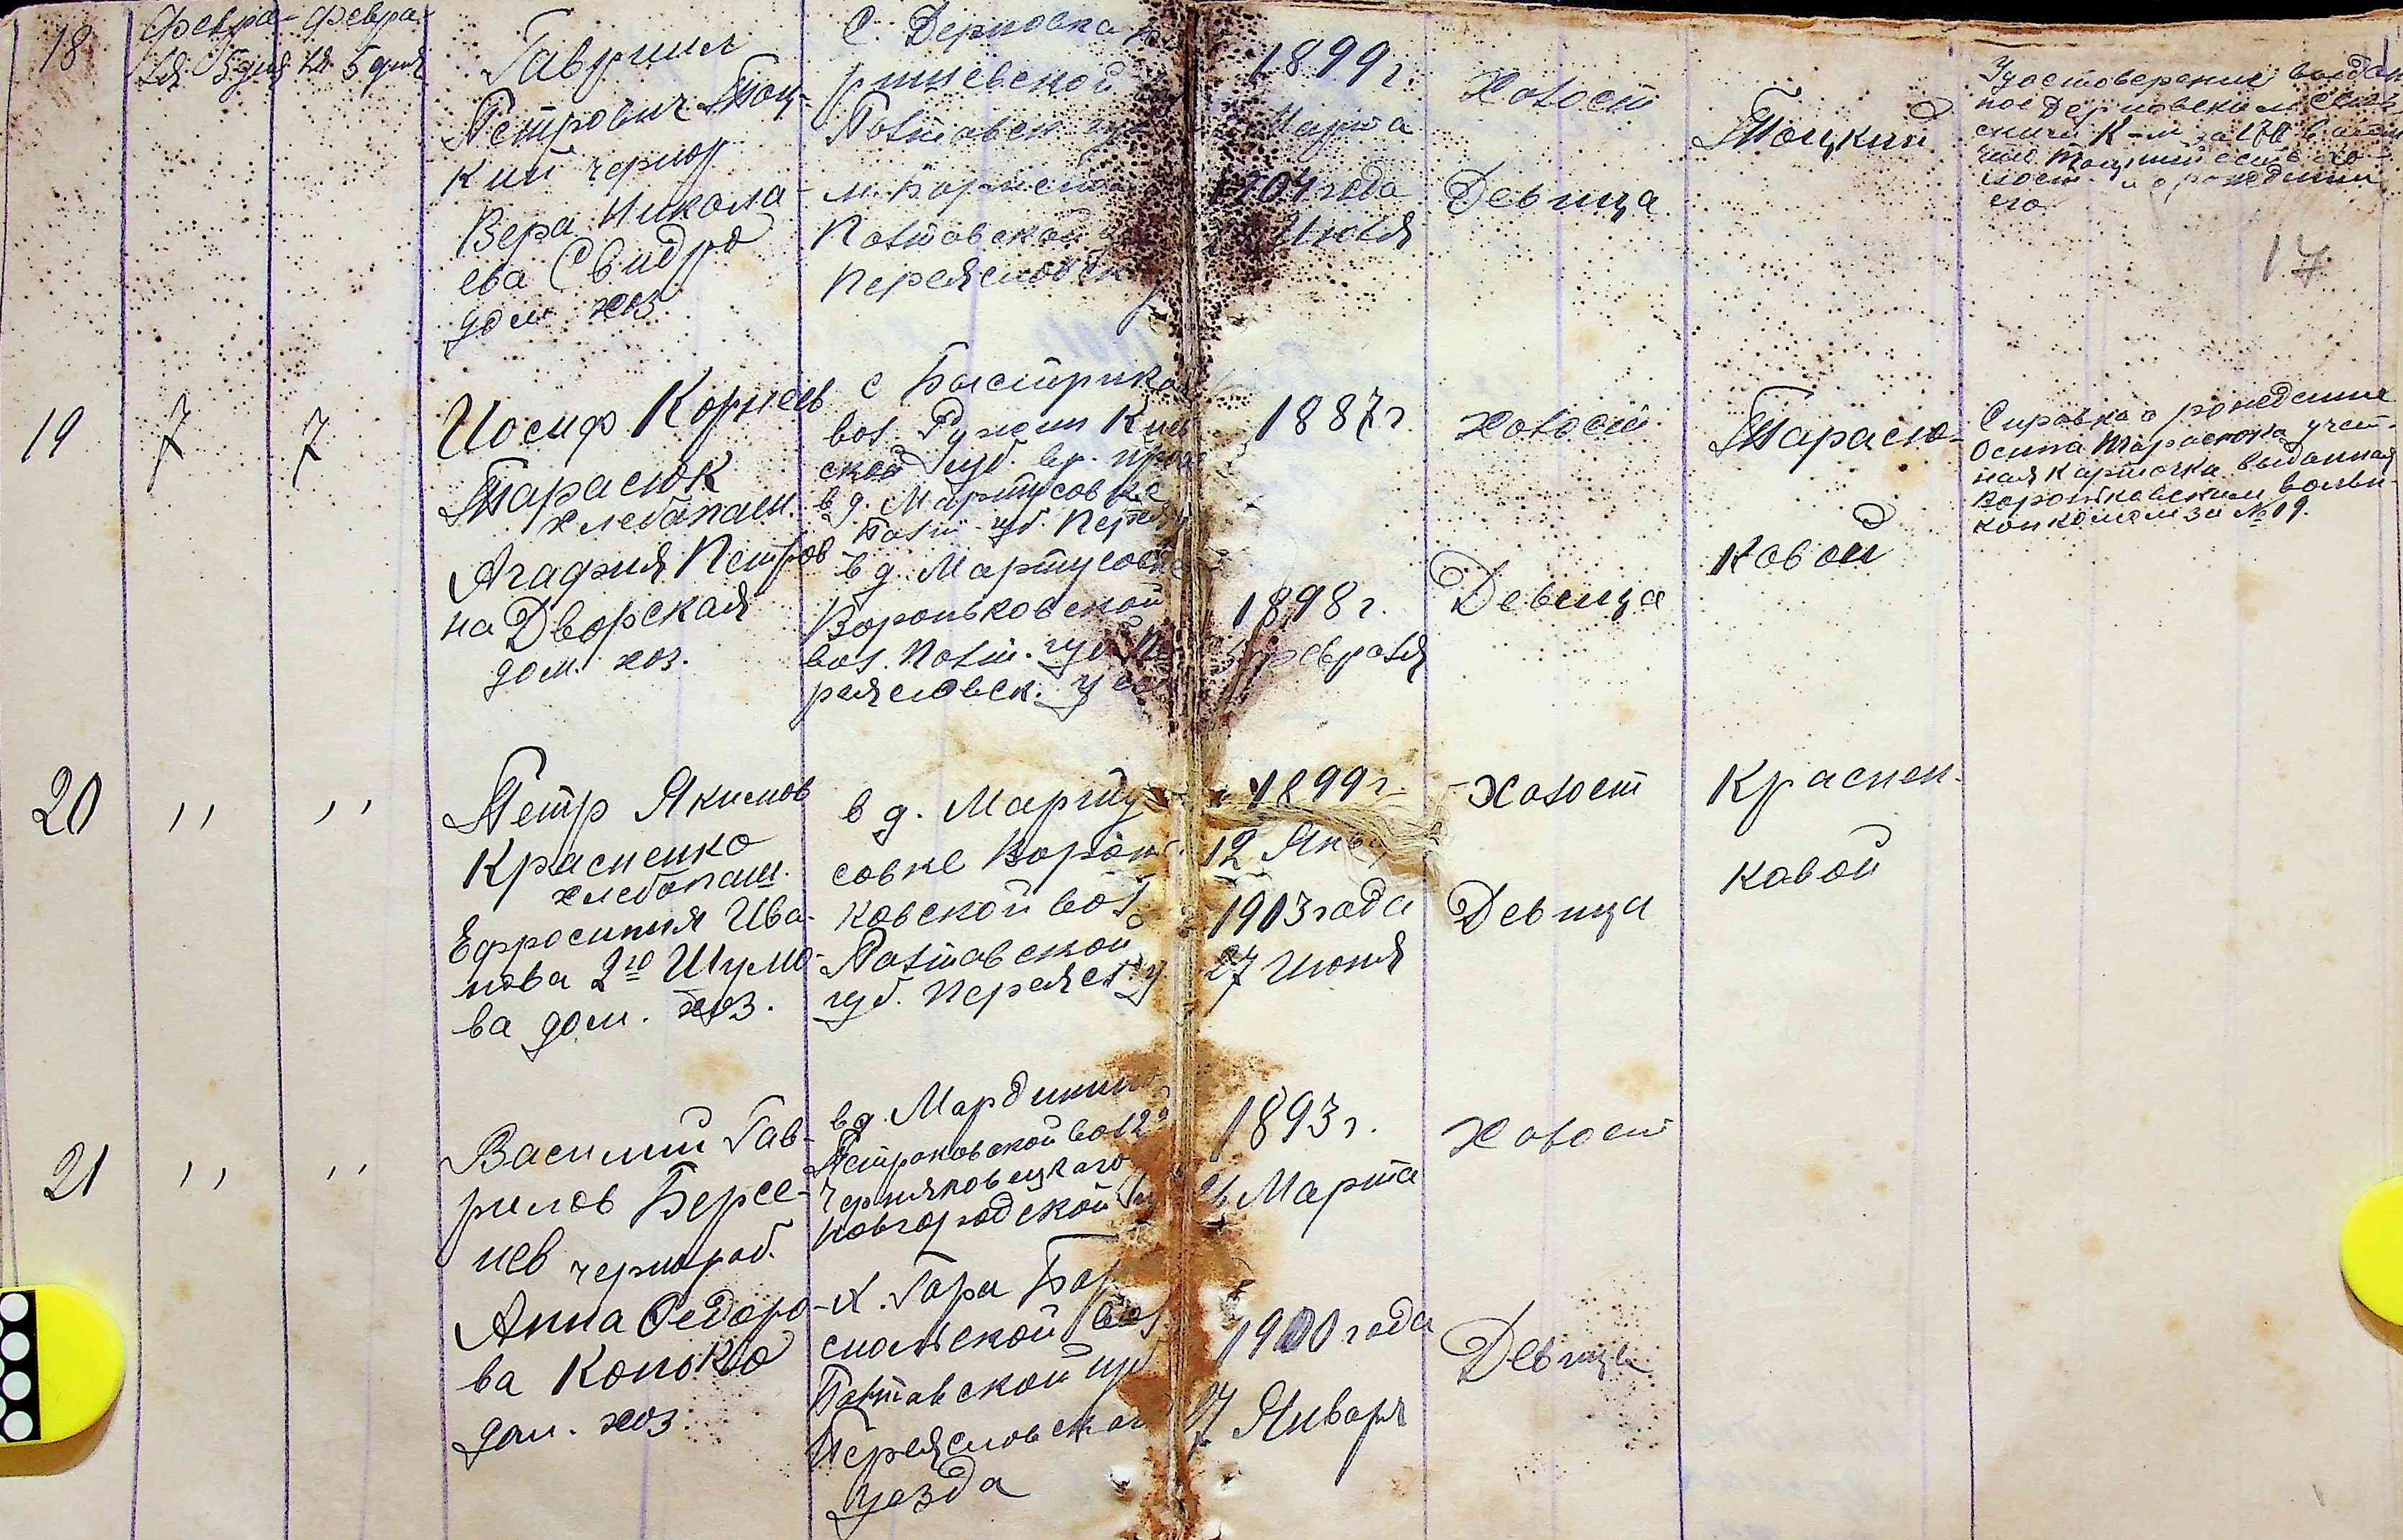 18
Февра-
ля 5 дня
Февра-
ля 5 дня
Гавриил
Петрович Тоц-
кий чернор
Вера Никола-
ева Свидро
дом хоз.
С. Дерновка
Полтавск
Полтавской
Переяславск
1899 г.
Марта
1904 года
Июля
Холост
Девица
Тоцкий
Удостоверение выдан
ное Дерновским Сель
ским К-м за 170 в том
что Тоцкий есть хо-
лост и о рождении
его
17
19
7
7
Иосиф Корнеев
Тарасюк
хлебопаш.
Агафия Петров
на Дворская
дом. хоз.
с
вол. Ружин Киев
ской Губ. вр. прож
в д. Мартусовке
Полт. губ. Перея
в д. Мартусовке
Вороньковской
вол. Полт. губ. Пе
реяславск. уез
1887 г.
1898 г.
5 февраля
холост
Девица
Тарасю-
ковой
Справка о рождении
Осипа Тарасюка учет-
ная карточка выданная
Вороньковским волвы-
конкомом за № 19.
20
〃
〃
Петр Якимов
Красненко
хлебопаш.
Ефросиния Ива-
нова 2го Шумо-
ва дом. хоз.
в д. Марту
совкеВорон
ковской вол
Полтавской
губ. Переясл. у.
1899 г.
12 Янва
1903 года
27 Июня
Холост
Девица
Краснен-
ковой
21
〃
〃
Василий Гав-
рилов Берсе-
нев чернораб.
Анна Федоро-
ва Конько
дом. хоз.
в д.
Петроковской вол
Новгородской Гу
х. Гора Бор
спольской вол
Полтавской губ
Переяславского
уезда
1893 г.
Марта
1900 года
27 Января
Холост
Девица